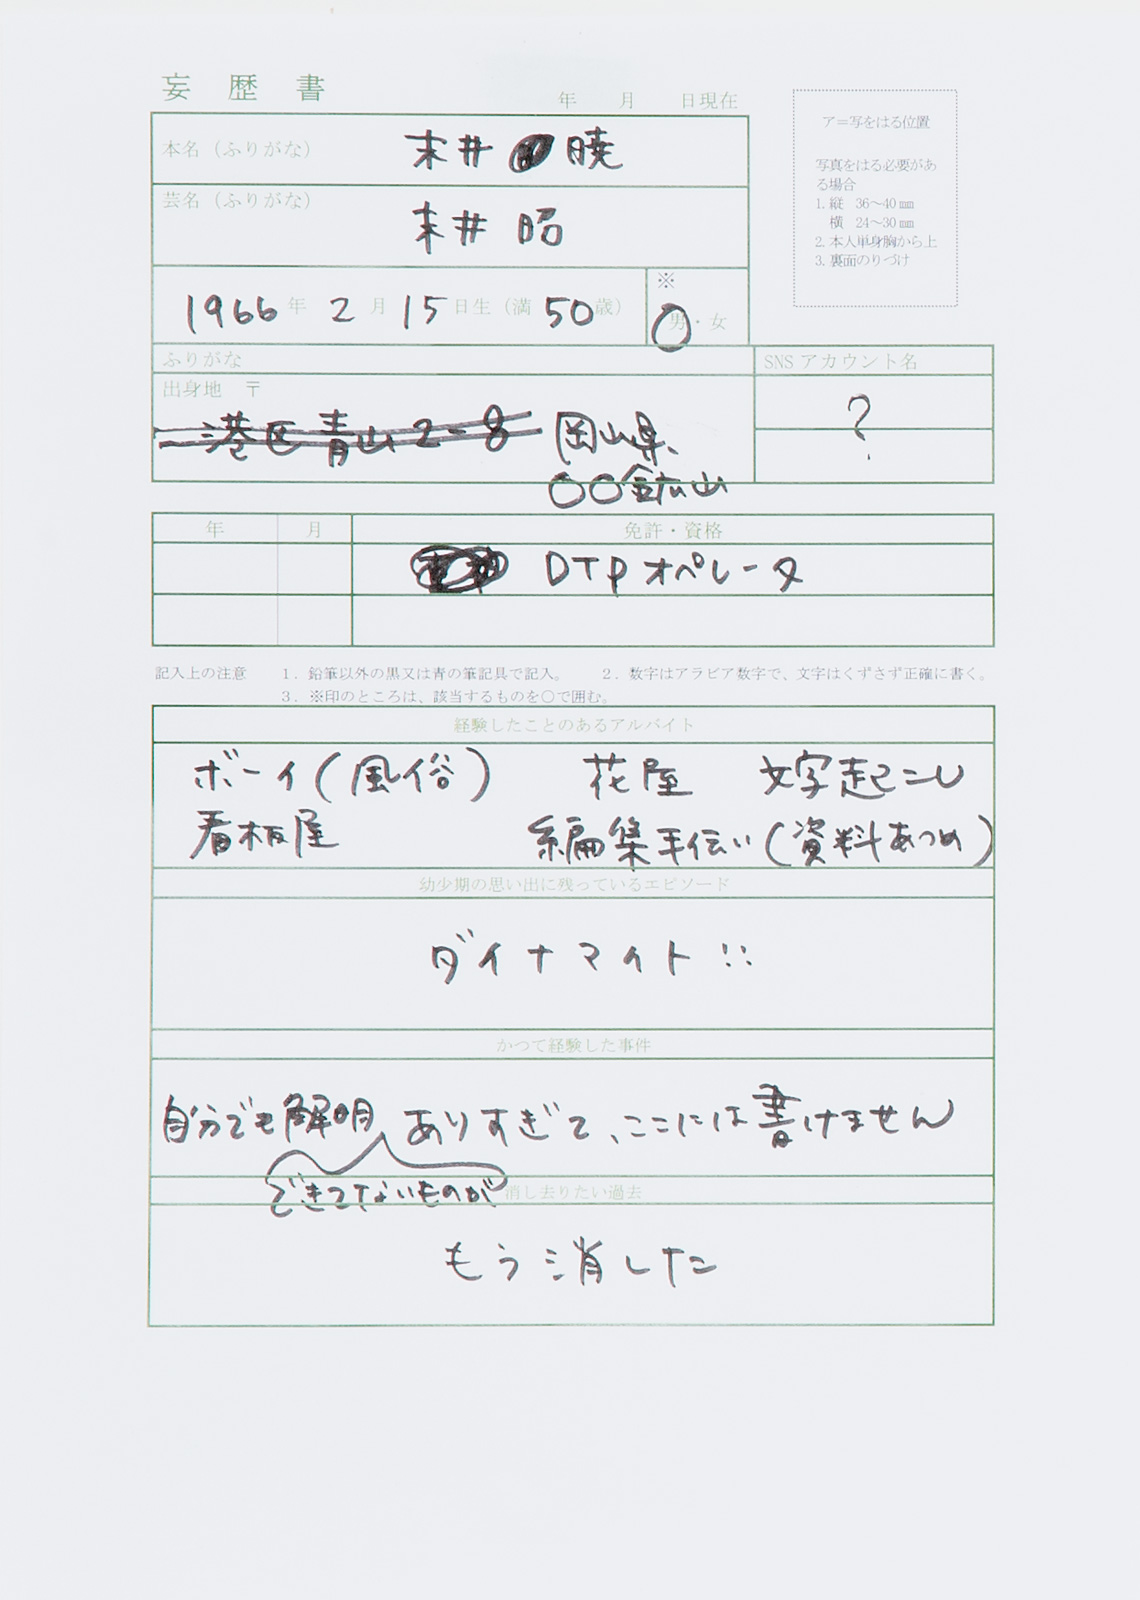 妄歴書
年 月 日現在
ア=写をはる位置
写真をはる必要があ
る場合
1. 縦 36～40㎜
横 24～30㎜
2. 本人単身胸から上
3. 裏面のりづけ
本名（ふりがな）
末井 暁
芸名（ふりがな）
末井 昭
1966年 2月 15日生（満 50歳）
※
男・女
ふりがな
SNSアカウント名
出身地 〒
港区青山2-8 岡山県、
○○鉱山
?
年 月 免許・資格
DTPオペレータ
記入上の注意 1．鉛筆以外の黒又は青の筆記具で記入。 2．数字はアラビア数字で、文字はくずさず正確に書く。
3．※印のところは、該当するものを○で囲む。
経験したことのあるアルバイト
ボーイ(風俗) 花屋 文字起こし
看板屋 編集手伝い(資料あつめ)
幼少期の思い出に残っているエピソード
ダイナマイト!!
かつて経験した事件
自分でも解明 ありすぎて、ここには書けません
できてないものが
消し去りたい過去
もう消した